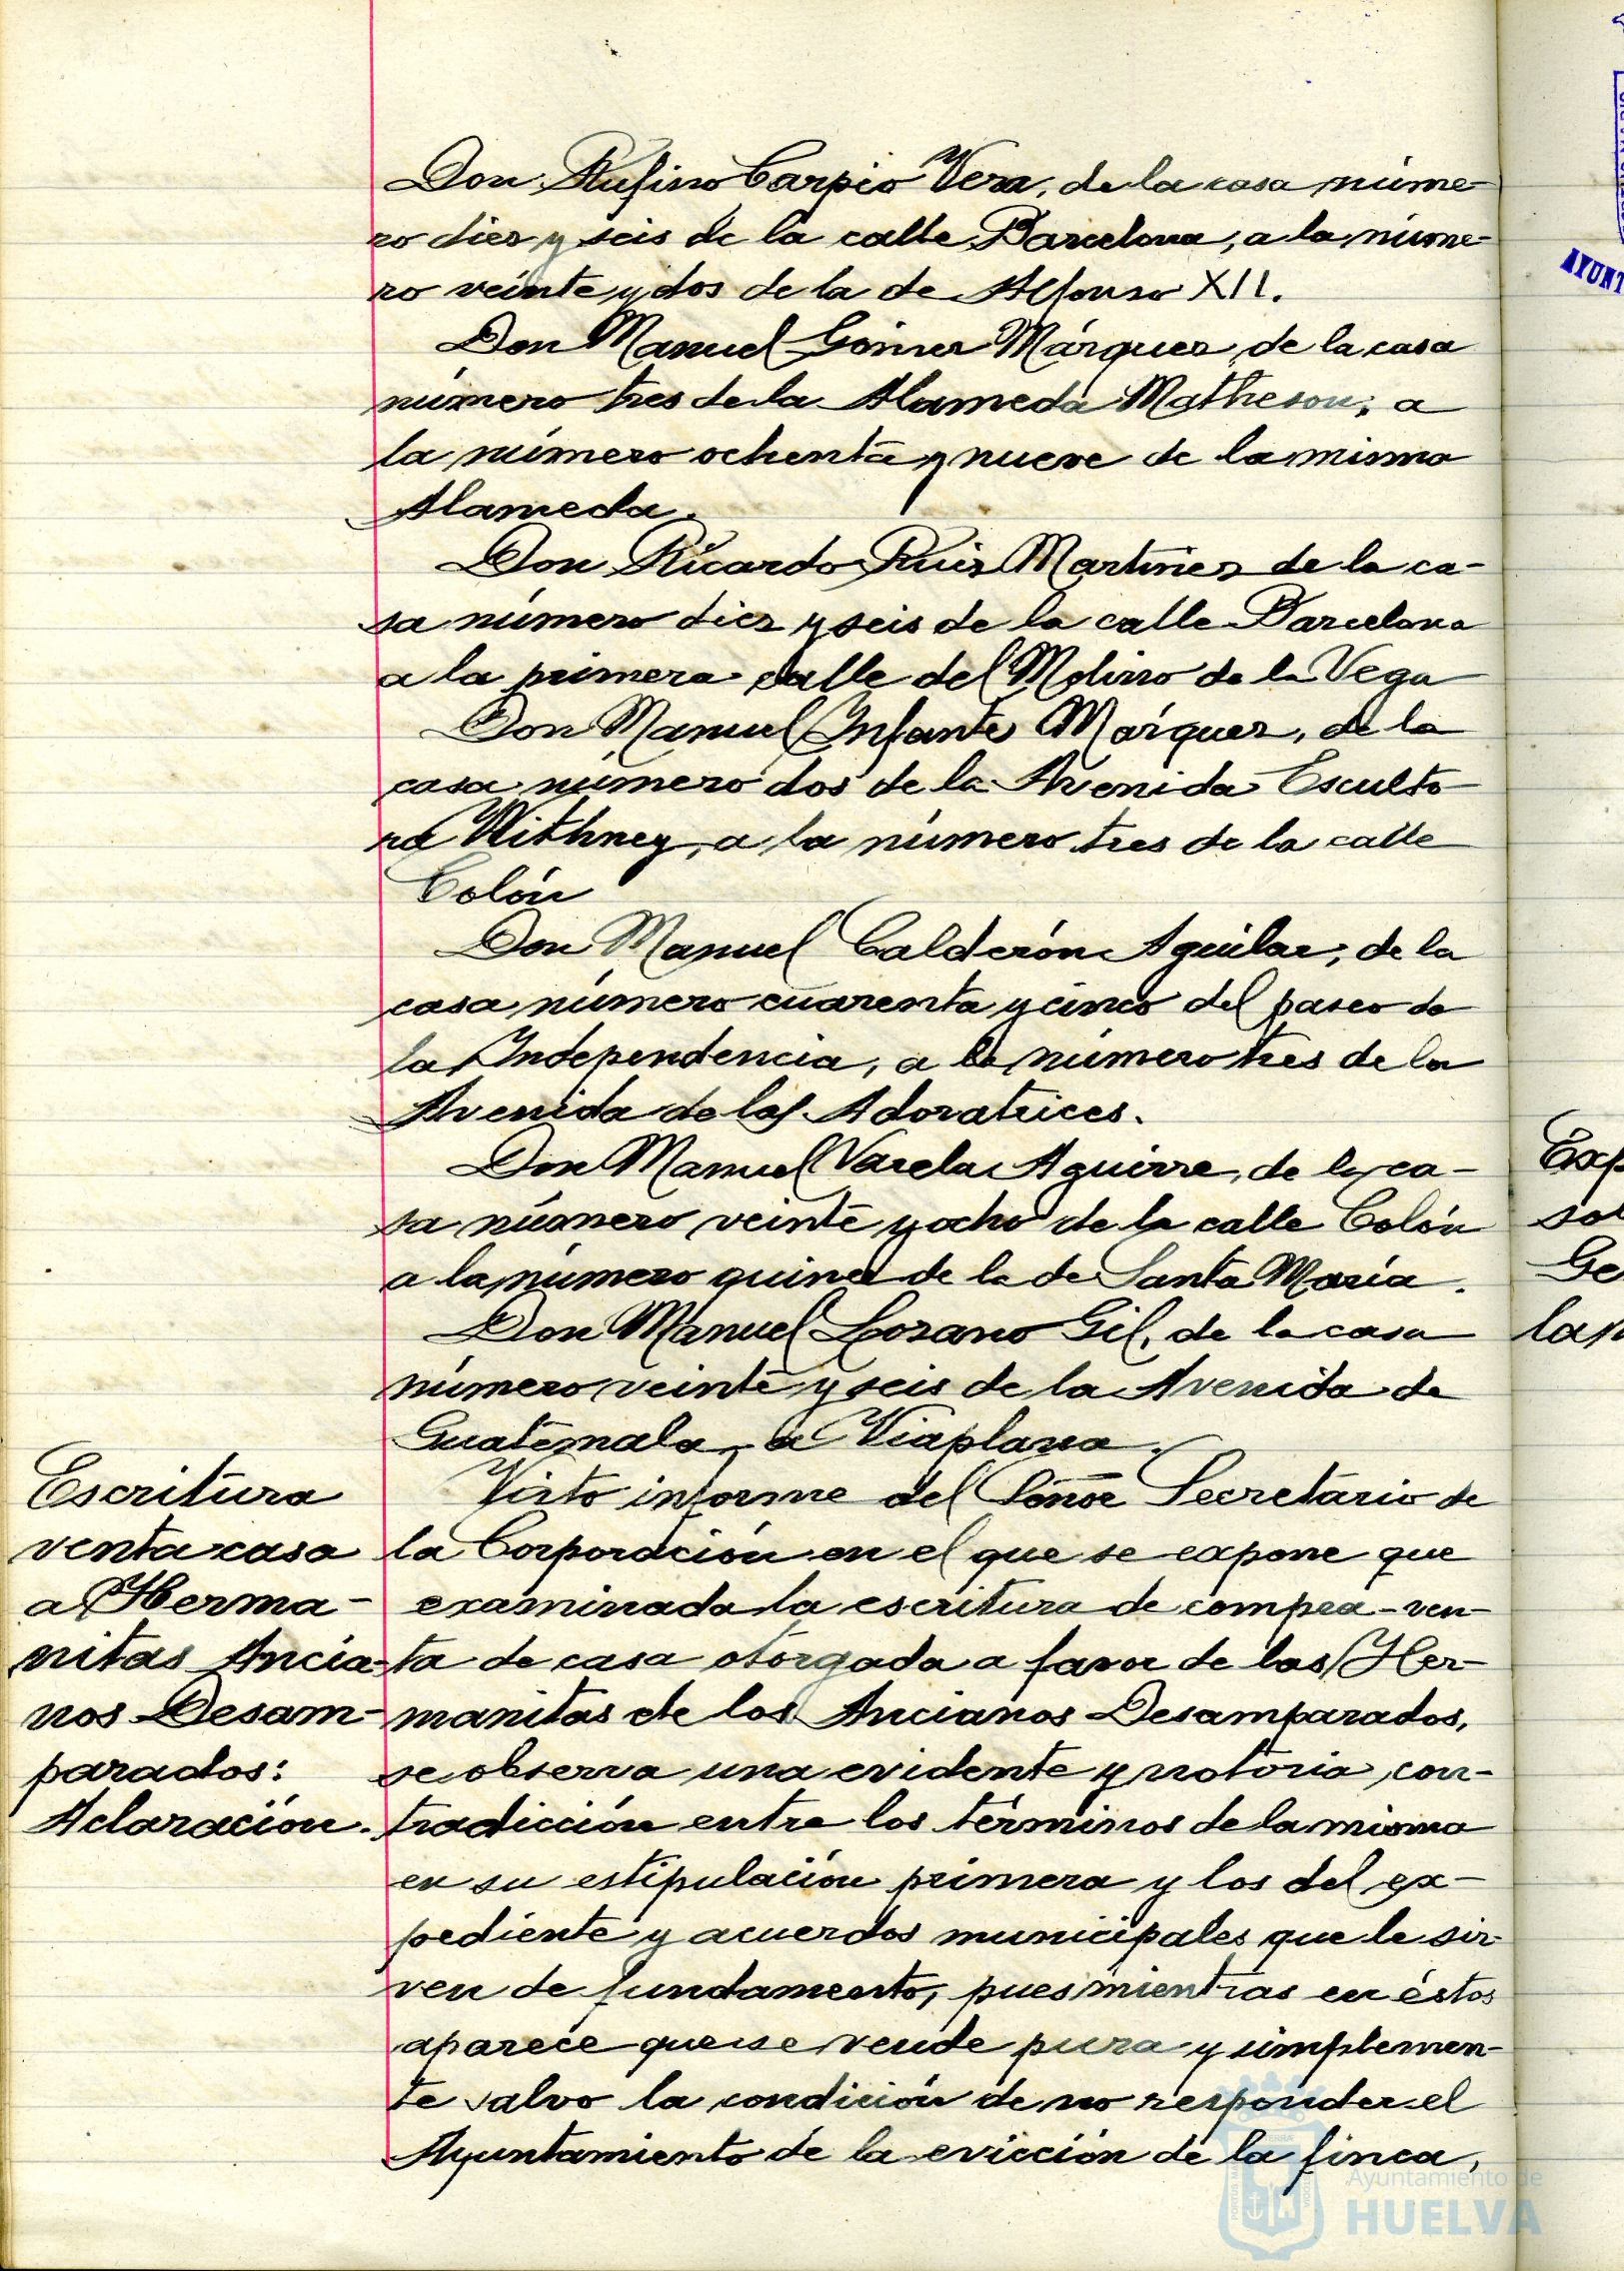 Don Rufino Carpio Vera, de la casa núme-
ro diez y seis de la calle Barcelona, a la núme-
ro veinte y dos de la de Alfonso XII.
Don Manuel Gómez Márquez, de la casa
número tres de la Alameda Matheson, a
la número ochenta y nueve de la misma
Alameda.
Don Ricardo Ruiz Martinez de la ca-
sa número diez y seis de la calle Barcelona
a la primera calle del Molino de la Vega
Don Manuel Infante Márquez, de la
casa número dos de la Avenida Esculto-
ra Withney, a la número tres de la calle
Colón
Don Manuel Calderón Aguilar, de la
casa número cuarenta y cinco del paseo de
la Independencia, a la número tres de la
Avenida de las Adoratrices.
Don Manuel Varela Aguirre, de la ca-
sa número veinte y ocho de la calle Colón
a la número quince de la de Santa María.
Don Manuel Lozano Gil, de la casa
número veinte y seis de la Avenida de
Guatemala, a Viaplana.
Escritura
venta casa
a Herma-
nitas Ancia-
nos Desam-
parados:
Aclaración.
Visto informe del Señor Secretario de
la Corporación en el que se expone que
examinada la escritura de compra-ven-
ta de casa otorgada a favor de las Her-
manitas de los Ancianos Desamparados,
se observa una evidente y notoria con-
tradicción entre los términos de la misma
en su estipulación primera y los del ex-
pediente y acuerdos municipales que le sir-
ven de fundamento, pues mientras en éstos
aparece que se vende pura y simplemen-
te salvo la condición de no responder el
Ayuntamiento de la evicción de la finca,
Ayuntamiento de
HUELVA